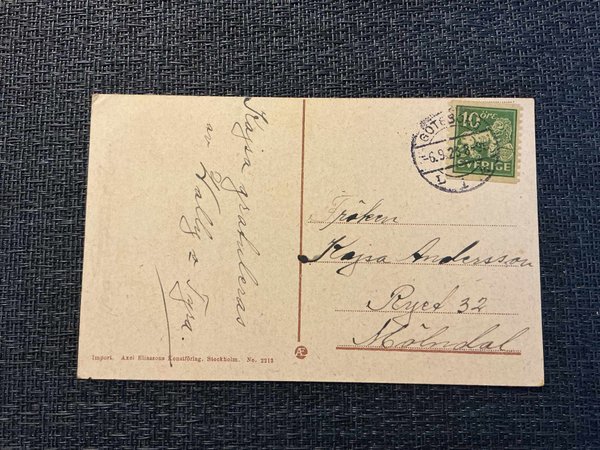 Kajsa gratuleras
av Vally o Tyra.
GÖTEB
6.9.2
10 ÖRE
SVERIGE
Fröken
Kajsa Andersson
Ryet 32
Mölndal
Import. Axel Eliassons Konstförlag. Stockholm. No. 2213
Æ